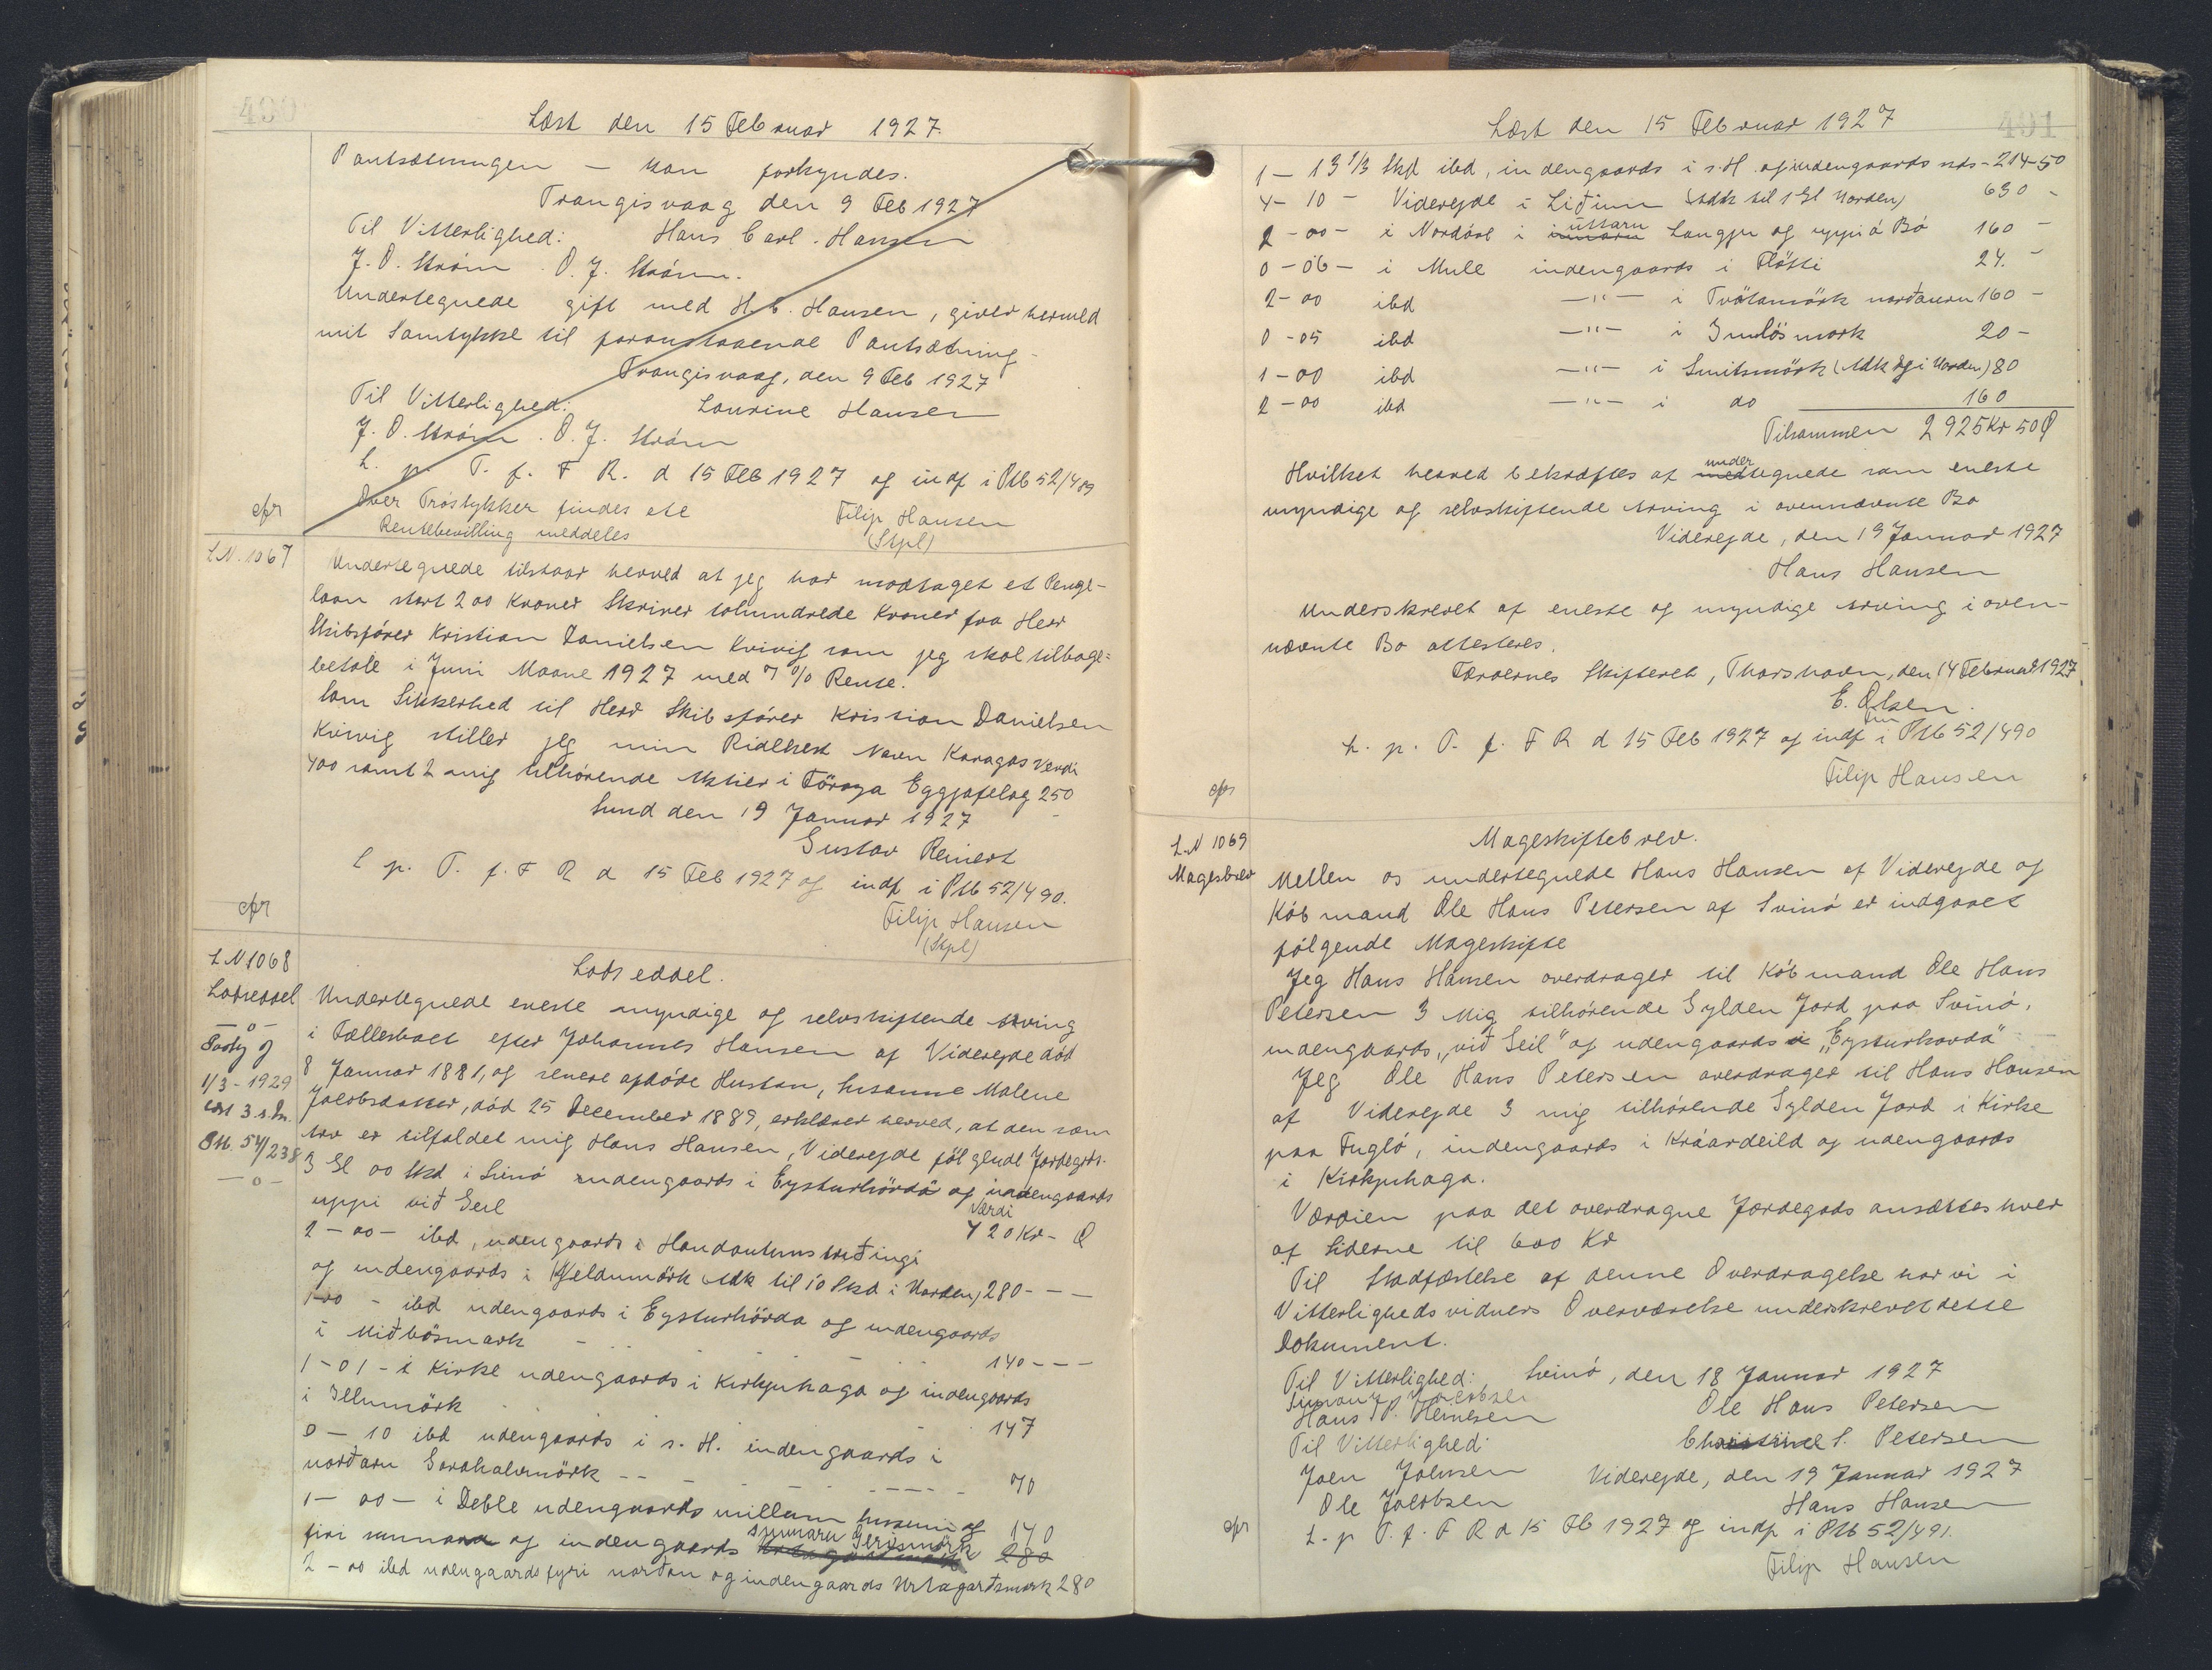 490
Læst den 15 Februar 1927.
Pantsætningen — kan forkyndes.
Trangisvaag den 9 Feb 1927
Til Vitterlighed: Hans Carl. Hansen
J. O. Strøm. O. J. Strøm.
Undertegnede gift med H. C. Hansen, giver hermed
mit Samtykke til foranstaaende Pantsætning.
Trangisvaag, den 9 Feb 1927
Til Vitterlighed: Laurine Hansen
J. O. Strøm. O. J. Strøm
L. p. T. f. F R. d 15 Feb 1927 og indf i Ptb 52/489
cfr Over findes ete Filip Hansen
Rentebevilling meddeles (Stpl)
LN. 1067 Undertegnede tilstaar herved at jeg har modtaget et Penge-
laan stort 200 Kroner Skriver tohundrede Kroner fra Herr
Skibsfører Kristian Danielsen Kvivig som jeg skal tilbage=
betale i Juni Maane 1927 med 7 % Rente.
Som Sikkerhed til Herr Skibsfører Kristian Danielsen
Kvivig stiller jeg min Ridehest Navn Karagas Verdi
400 samt 2 mig tilhørende Aktier i Föroya Eggjafelag 250
Sund den 19 Januar 1927 -
Gustav Reinert
L p. T. f. F R d 15 Feb 1927 og indf i Ptb 52/490.
cfr Filip Hansen
(Stpl)
LN 1068 Lodseddel.
Lodseddel Undertegnede eneste myndige og selvskiftende Arving
—o— i Fællesboet efter Johannes Hansen af Viderejde død
8 Januar 1881, og senere afdøde Hustru, Susanne Malene
1/3-1929 Jacobsdatter, død 25 December 1889, erklærer herved, at den som
Arv er tilfaldet mig Hans Hansen, Viderejde følgende Jordegds.
Ptb. 54/238 3 Gl 00 Skd i Svinö udengaards i Eysturhörda og indengaards
—o— uppi við Geil Værdi 420 Kr - Ø
2 - 00 - ibd, udengaards i
og indengaards i Kjeldumörk Adk til 10 Skd i Norden, 280 - - -
1-00 - ibd udengaards i Eysturhörda og indengaards
i Miðbösmark - - - - 140 - - -
1 - 01 - i Kirke udengaards i Kirkjuhaga og indengaards
i Illumörk 147
0 - 10 ibd udengaards i s. H. indengaards i
norðaru Garahalvmörk - - - - - - - 70
1 - 00 - i Deble udengaards millum og 140
firi sunnan og indengaards sunnaru 280
2 - 00 ibd udengaards fyri norðan og indengaards Urtagarðsmark 280
491
Læst den 15 Februar 1927
1 - 13 1/3 Skd ibd, indengaards i s. H. af indengaards nds - 214-50
4 - 10 - Viderejde i Liðinn (Adk til 1 Gl Norden) 630 -
2 - 00 - i Nordöre i innaru uttaru Langgu og uppi á Bö 160 -
0 - 06 - i Mule indengaards i Fløtti 24. -
2 - 00 ibd —"— i Tvötamörk norðaru 160 -
0 - 05 ibd —"— i 20 -
1 - 00 ibd —"— i Smitsmörk (Adk i Norden) 80
2 - 00 ibd —"— i do 160
Tilsammen 2 925 Kr 50 Ø
Hvilket herved bekræftes af medtegnede under som eneste
myndige og selvskiftende Arving i ovennævnte Bo
Viderejde, den 19 Januar 1927
Hans Hansen
Underskrevet af eneste og myndige Arving i oven-
nævnte Bo attesteres.
Færøernes Skifteret, Thorshavn, den 14 Februar 1927.
E. Olsen.
fm
L. p. T. f. F R d 15 Feb 1927 og indf i Ptb 52/490
cfr Filip Hansen
L.N 1069 Mageskiftebrev.
Magesbrev Mellen os undertegnede Hans Hansen af Viderejde og
Købmand Ole Hans Petersen af Svinö er indgaaet
følgende Mageskifte
Jeg Hans Hansen overdrager til Købmand Ole Hans
Petersen 3 Mig tilhørende Gylden Jord paa Svinö,
indengaards „við Geil" og udengaards i „Eysturhorda"
Jeg Ole Hans Petersen overdrager til Hans Hansen
af Viderejde 3 mig tilhørende Gylden Jord i Kirke
paa Fuglö, indengaards i Kráardeild og udengaards
i Kirkjuhaga.
Værdien paa det overdragne Jordegods ansættes hver
af Siderne til 600 Kr
Til Stadfæstelse af denne Overdragelse har vi i
Vitterlighedsvidners Overværelse underskrevet dette
Dokument.
Til Vitterlighed: Svinö, den 18 Januar 1927
Simon J. Jacobsen
Hans P. Heinesen Ole Hans Petersen
Til Vitterlighed: Christine S. Petersen
Joen Joensen Viderejde, den 19 Januar 1927
Ole Jacobsen Hans Hansen
cfr L. p T. f. F R d 15 Feb 1927 og indf i Ptb 52/491.
Filip Hansen